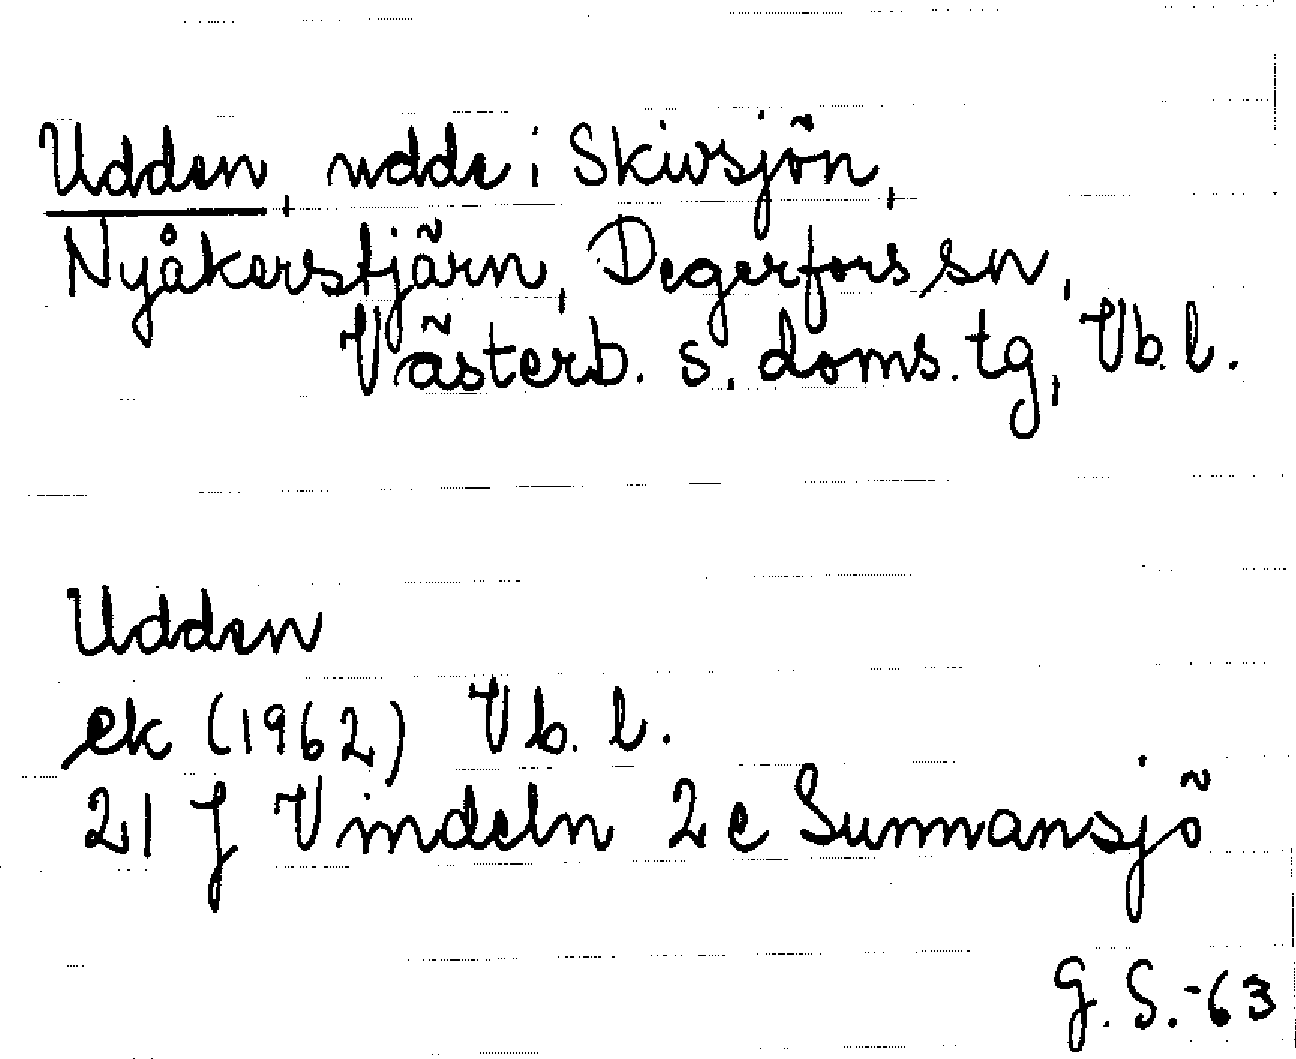 Udden, udde i Skivsjön,
Nyåkerstjärn, Degerfors sn,
Västerb. s. doms. tg, Vb. l.
Udden
ek (1962) Vb. l.
21 J Vindeln 2 c Sunnansjö
G. S. -63